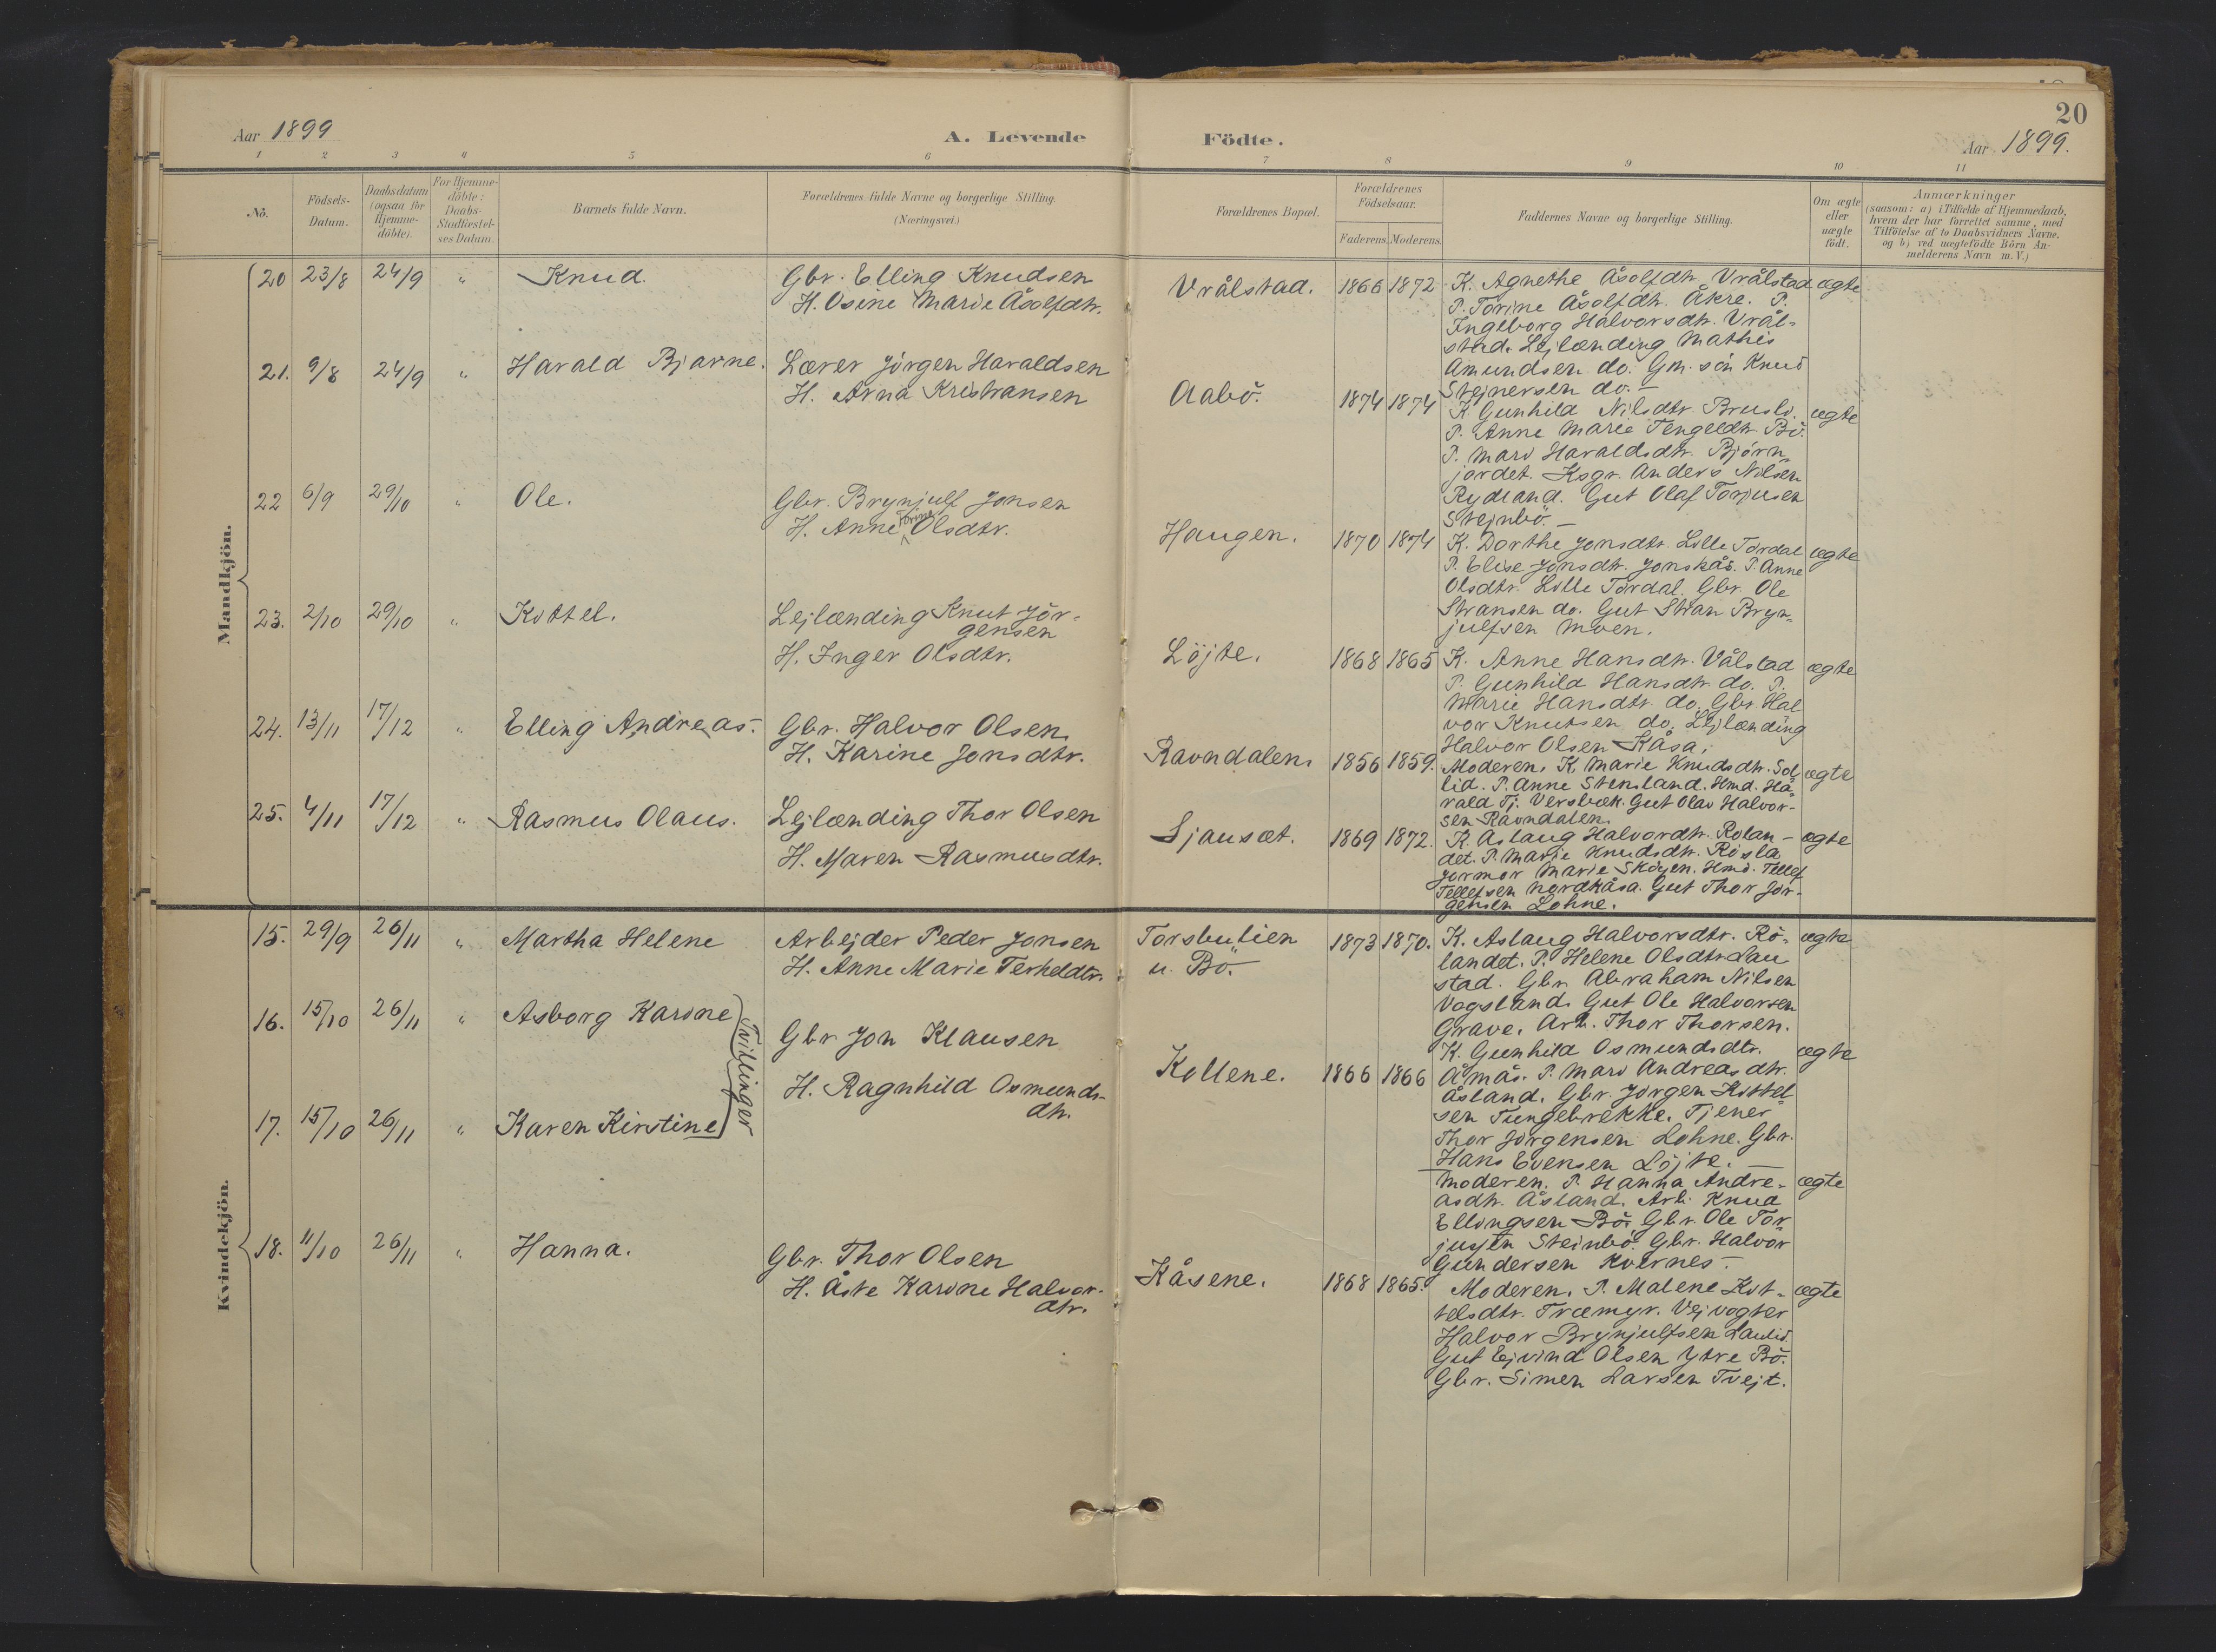 20
Aar 1899
A. Levende Födte.
Aar 1899.
1 2 3 4 5 6 7 8 9 10 11
No.
Födsels-
Datum.
Daabsdatum
(ogsaa for
Hjemme-
döbte).
For Hjemme-
döbte:
Daabs-
Stadfæstel-
ses Datum.
Barnets fulde Navn.
Forældrenes fulde Navne og borgerlige Stilling.
(Næringsvei.)
Forældrenes Bopæl.
Forældrenes
Födselsaar.
Faderens. Moderens.
Faddernes Navne og borgerlige Stilling.
Om ægte
eller
uægte
födt.
Anmærkninger
(saasom: a) i Tilfælde af Hjemmedaab,
hvem der har forrettet samme, med
Tilföielse af to Daabsvidners Navne,
og b) ved uægtefödte Börn An-
melderens Navn m. V.)
Mandkjön.
20 23/8 24/9 " Knud.
Gbr. Elling Knudsen
H. Osine Marie Åsolfdtr.
Vrålstad. 1866 1872
K. Agnethe Åsolfdtr. Vrålstad
P. Torine Åsolfdtr. Åkre. P.
Ingeborg Halvorsdtr. Vrål-
stad. Lejlænding Mathis
Amundsen do. Gm. sön Knud
Stejnersen do. —
ægte
21. 9/8 24/9 " Harald Bjarne.
Lærer Jörgen Haraldsen
H. Anna Kristiansen
Aabö. 1874 1874
K. Gunhild Nilsdtr. Brusli.
P. Anne Marie Tengeldtr. Bö.
P. Mari Haraldsdtr. Björn-
jordet. Ksgr. Anders Nilsen
Rydland. Gut Olaf Torjusen
Stejnbö. —
ægte
22 6/9 29/10 " Ole.
Gbr. Brynjulf Jonsen
H. Anne Torine Olsdtr.
Haugen. 1870 1874
K. Dorthe Jonsdtr. Lille Tordal
P. Elise Jonsdtr. Jonskås. P. Anne
Olsdtr. Lille Tordal. Gbr. Ole
Stiansen do. Gut Stian Bryn-
julfsen Moen.
ægte
23. 2/10 29/10 " Kittel.
Lejlænding Knut Jör-
gensen
H. Inger Olsdtr.
Löjte. 1868 1865
K. Anne Hansdtr. Vålstad
P. Gunhild Hansdtr. do. P.
Marie Hansdtr. do. Gbr. Hal
vor Knutsen do. Lejlænding
Halvor Olsen Kåsa.
ægte
24. 13/11 17/12 " Elling Andreas.
Gbr. Halvor Olsen
H. Karine Jonsdtr.
Ravndalen. 1856 1859.
Moderen. K. Marie Knudsdtr. Sol
lid. P. Anne Stensland. Hmd. Ha
rald Tj. Versbæk. Gut Olav Halvor-
sen Ravndalen.
ægte
25. 4/11 17/12 " Rasmus Olaus.
Lejlænding Thor Olsen
H. Maren Rasmusdtr.
Sjausæt. 1869 1872.
K. Aslaug Halvordtr. Rolan-
det. P. Marie Knudsdtr. Rösla
Jormor Marie Skogen. Hmd. Tellef
Tellefsen Nordkåsa. Gut Thor Jör-
gensen Lohne.
ægte
Kvindekjön.
15. 29/9 26/11 " Martha Helene
Arbejder Peder Jonsen
H. Anne Marie Terkeldtr.
Torsbulien
u. Bö. 1873 1870.
K. Aslaug Halvorsdtr. Rö-
landet. P. Helene Olsdtr. Lau
stad. Gbr. Abraham Nilsen
Vogsland. Gut Ole Halvorsen
Grave. Arb. Thor Thorsen.
ægte
16. 15/10 26/11 " Asborg Karine
Tvillinger
Gbr Jon Klausen
H. Ragnhild Osmunds-
dtr.
Kollene. 1866 1866
K. Gunhild Osmundsdtr.
Åmås. P. Mari Andreasdtr.
Åsland. Gbr. Jörgen Kittel
sen Tungebrekke. Tjener
Thor Jörgensen Lohne. Gbr.
Hans Evensen Löjte. —
ægte
17. 15/10 26/11 " Karen Kirstine
Moderen. P. Hanna Andre-
asdtr. Åsland. Arb. Knud
Ellingsen Bö. Gbr. Ole Tor
jusen Steinbö. Gbr. Halvor
Gundersen Kvernes. —
ægte
18. 11/10 26/11 " Hanna.
Gbr. Thor Olsen
H. Åste Karine Halvor-
dtr.
Kåsene. 1868 1865.
Moderen. P. Malene Kit-
telsdtr. Træmyr. Vejvogter
Halvor Brynjulfsen Laulid.
Gut Ejvind Olsen Ytre Bö.
Gbr. Simen Larsen Tvejt.
ægte